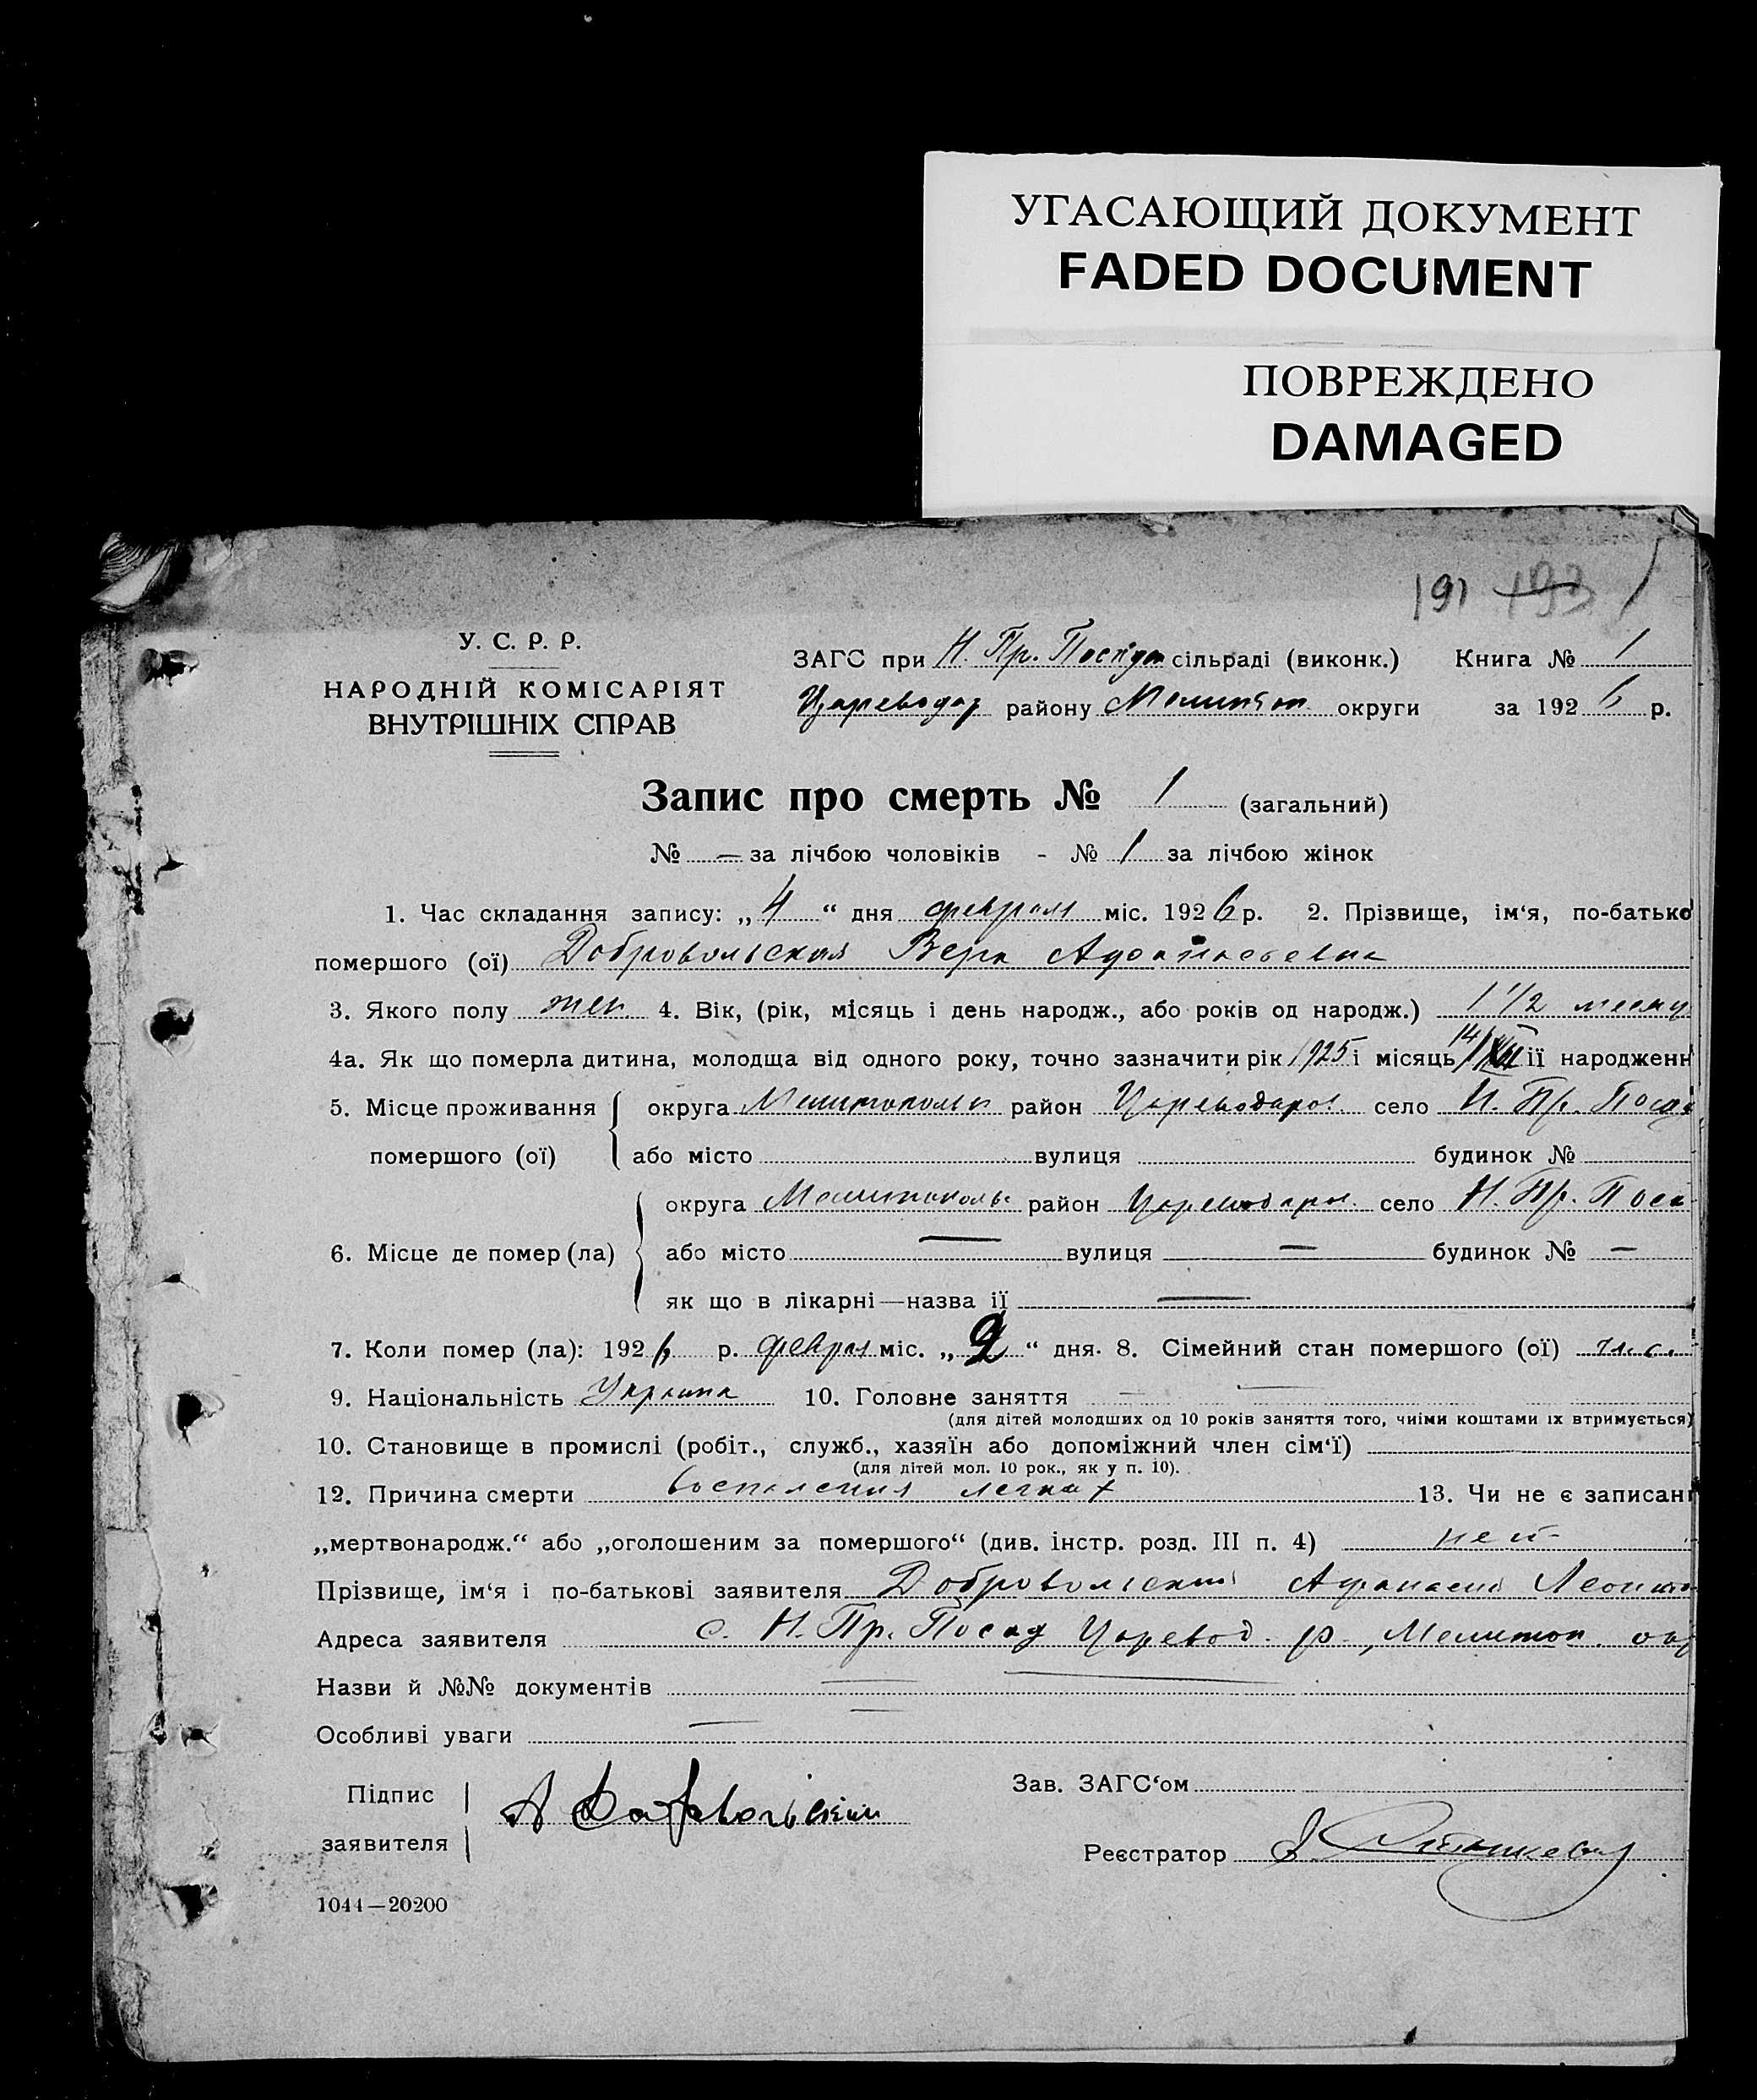 УГАСАЮЩИЙ ДОКУМЕНТ
FADED DOCUMENT
ПОВРЕЖДЕНО
DAMAGED
191 193 1
У. С. Р. Р.
НАРОДНІЙ КОМІСАРІЯТ
ВНУТРІШНІХ СПРАВ
ЗАГС при Н. Пр. Посідон сільраді (виконк.) Книга № 1
Цареводар району Мелитоп округи за 1926 р.
Запис про смерть № 1 (загальний)
№ — за лічбою чоловіків - № 1 за лічбою жінок
1. Час складання запису: „4“ дня февраля міс. 1926 р. 2. Прізвище, ім‘я, по-батько
помершого (ої) Добровольская Вера Афанасьевна
3. Якого полу жен 4. Вік, (рік, місяць і день народж., або років од народж.) 1 1/2 месяц
4а. Як що померла дитина, молодща від одного року, точно зазначити рік 1925 і місяць 14/XII ії народженн
5. Місце проживання округа Мелитополь район Цареводаров. село Н. Пр. Посад
помершого (ої) або місто вулиця будинок №
округа Мелитополь район Цареводаров. село Н. Пр. Поса
6. Місце де помер (ла) або місто — вулиця — будинок № —
як що в лікарні—назва ії —
7. Коли помер (ла): 1926 р. феврал міс. „2“ дня. 8. Сімейний стан помершого (ої) чл. с.
9. Національність Украинка 10. Головне заняття —
(для дітей молодших од 10 років заняття того, чиїми коштами їх втримується)
10. Становище в промислі (робіт., служб., хазяїн або допоміжний член сім‘ї)
(для дітей мол. 10 рок., як у п. 10).
12. Причина смерти воспаления легких 13. Чи не є записан
„мертвонародж.“ або „оголошеним за помершого“ (див. інстр. розд. III п. 4) нет
Прізвище, ім‘я і по-батькові заявителя Добровольский Афанасий Леонт
Адреса заявителя с. Н. Пр. Посад Царевод. р., Мелитоп. окр
Назви й №№ документів —
Особливі уваги —
Підпис заявителя А Добровольский
Зав. ЗАГС‘ом
Реєстратор
1044—20200